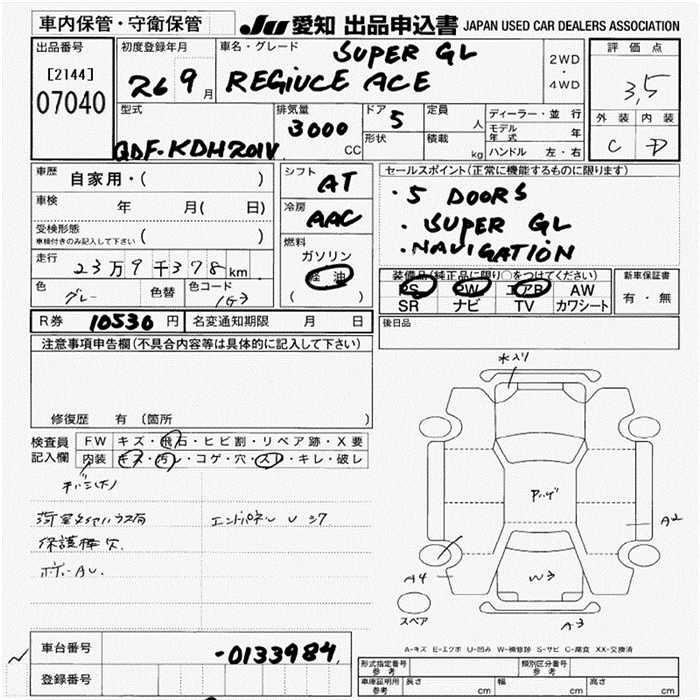 車内保管・守衛保管
JU 愛知 出品申込書 JAPAN USED CAR DEALERS ASSOCIATION
出品番号
[2144]
07040
初度登録年月
26 9月
車名・グレード
SUPER GL
REGIUCE ACE
2WD
・
4WD
評価点
3,5
外装 内装
C D
型式
QDF-KDH201V
排気量
3000 CC
ドア 5
形状
定員 人
積載 kg
ディーラー・並行
モデル年式 年
ハンドル 左・右
車歴 自家用・( )
車検 年 月( 日)
受検形態
車検付きのみ記入して下さい ( )
走行 23万9千378km
色 グレー 色替 色コード 1G3
シフト AT
冷房 AAC
燃料
ガソリン
軽油
( )
セールスポイント(正常に機能するものに限ります)
・5 DOORS
・SUPER GL
・NAVIGATION
装備品(純正品に限り○をつけてください)
PS PW エアB AW
SR ナビ TV カワシート
新車保証書
有・無
R券 10530円 名変通知期限 月 日
後日品
注意事項申告欄(不具合内容等は具体的に記入して下さい)
修復歴 有 (箇所
検査員
記入欄
FW キズ・飛石・ヒビ割・リペア跡・X要
内装 キズ・汚レ・コゲ・穴・スレ・キレ・破レ
エンドパネル U シワ
保護棒欠
水入り
A2
A4
W3
A3
スペア
A-キズ E-エクボ U-凹み W-補修跡 S-サビ C-腐食 XX-交換済
車台番号 -0133984
登録番号
形式指定番号
参考
類別区分番号
参考
車庫証明用
参考
長さ cm 幅 cm 高さ cm